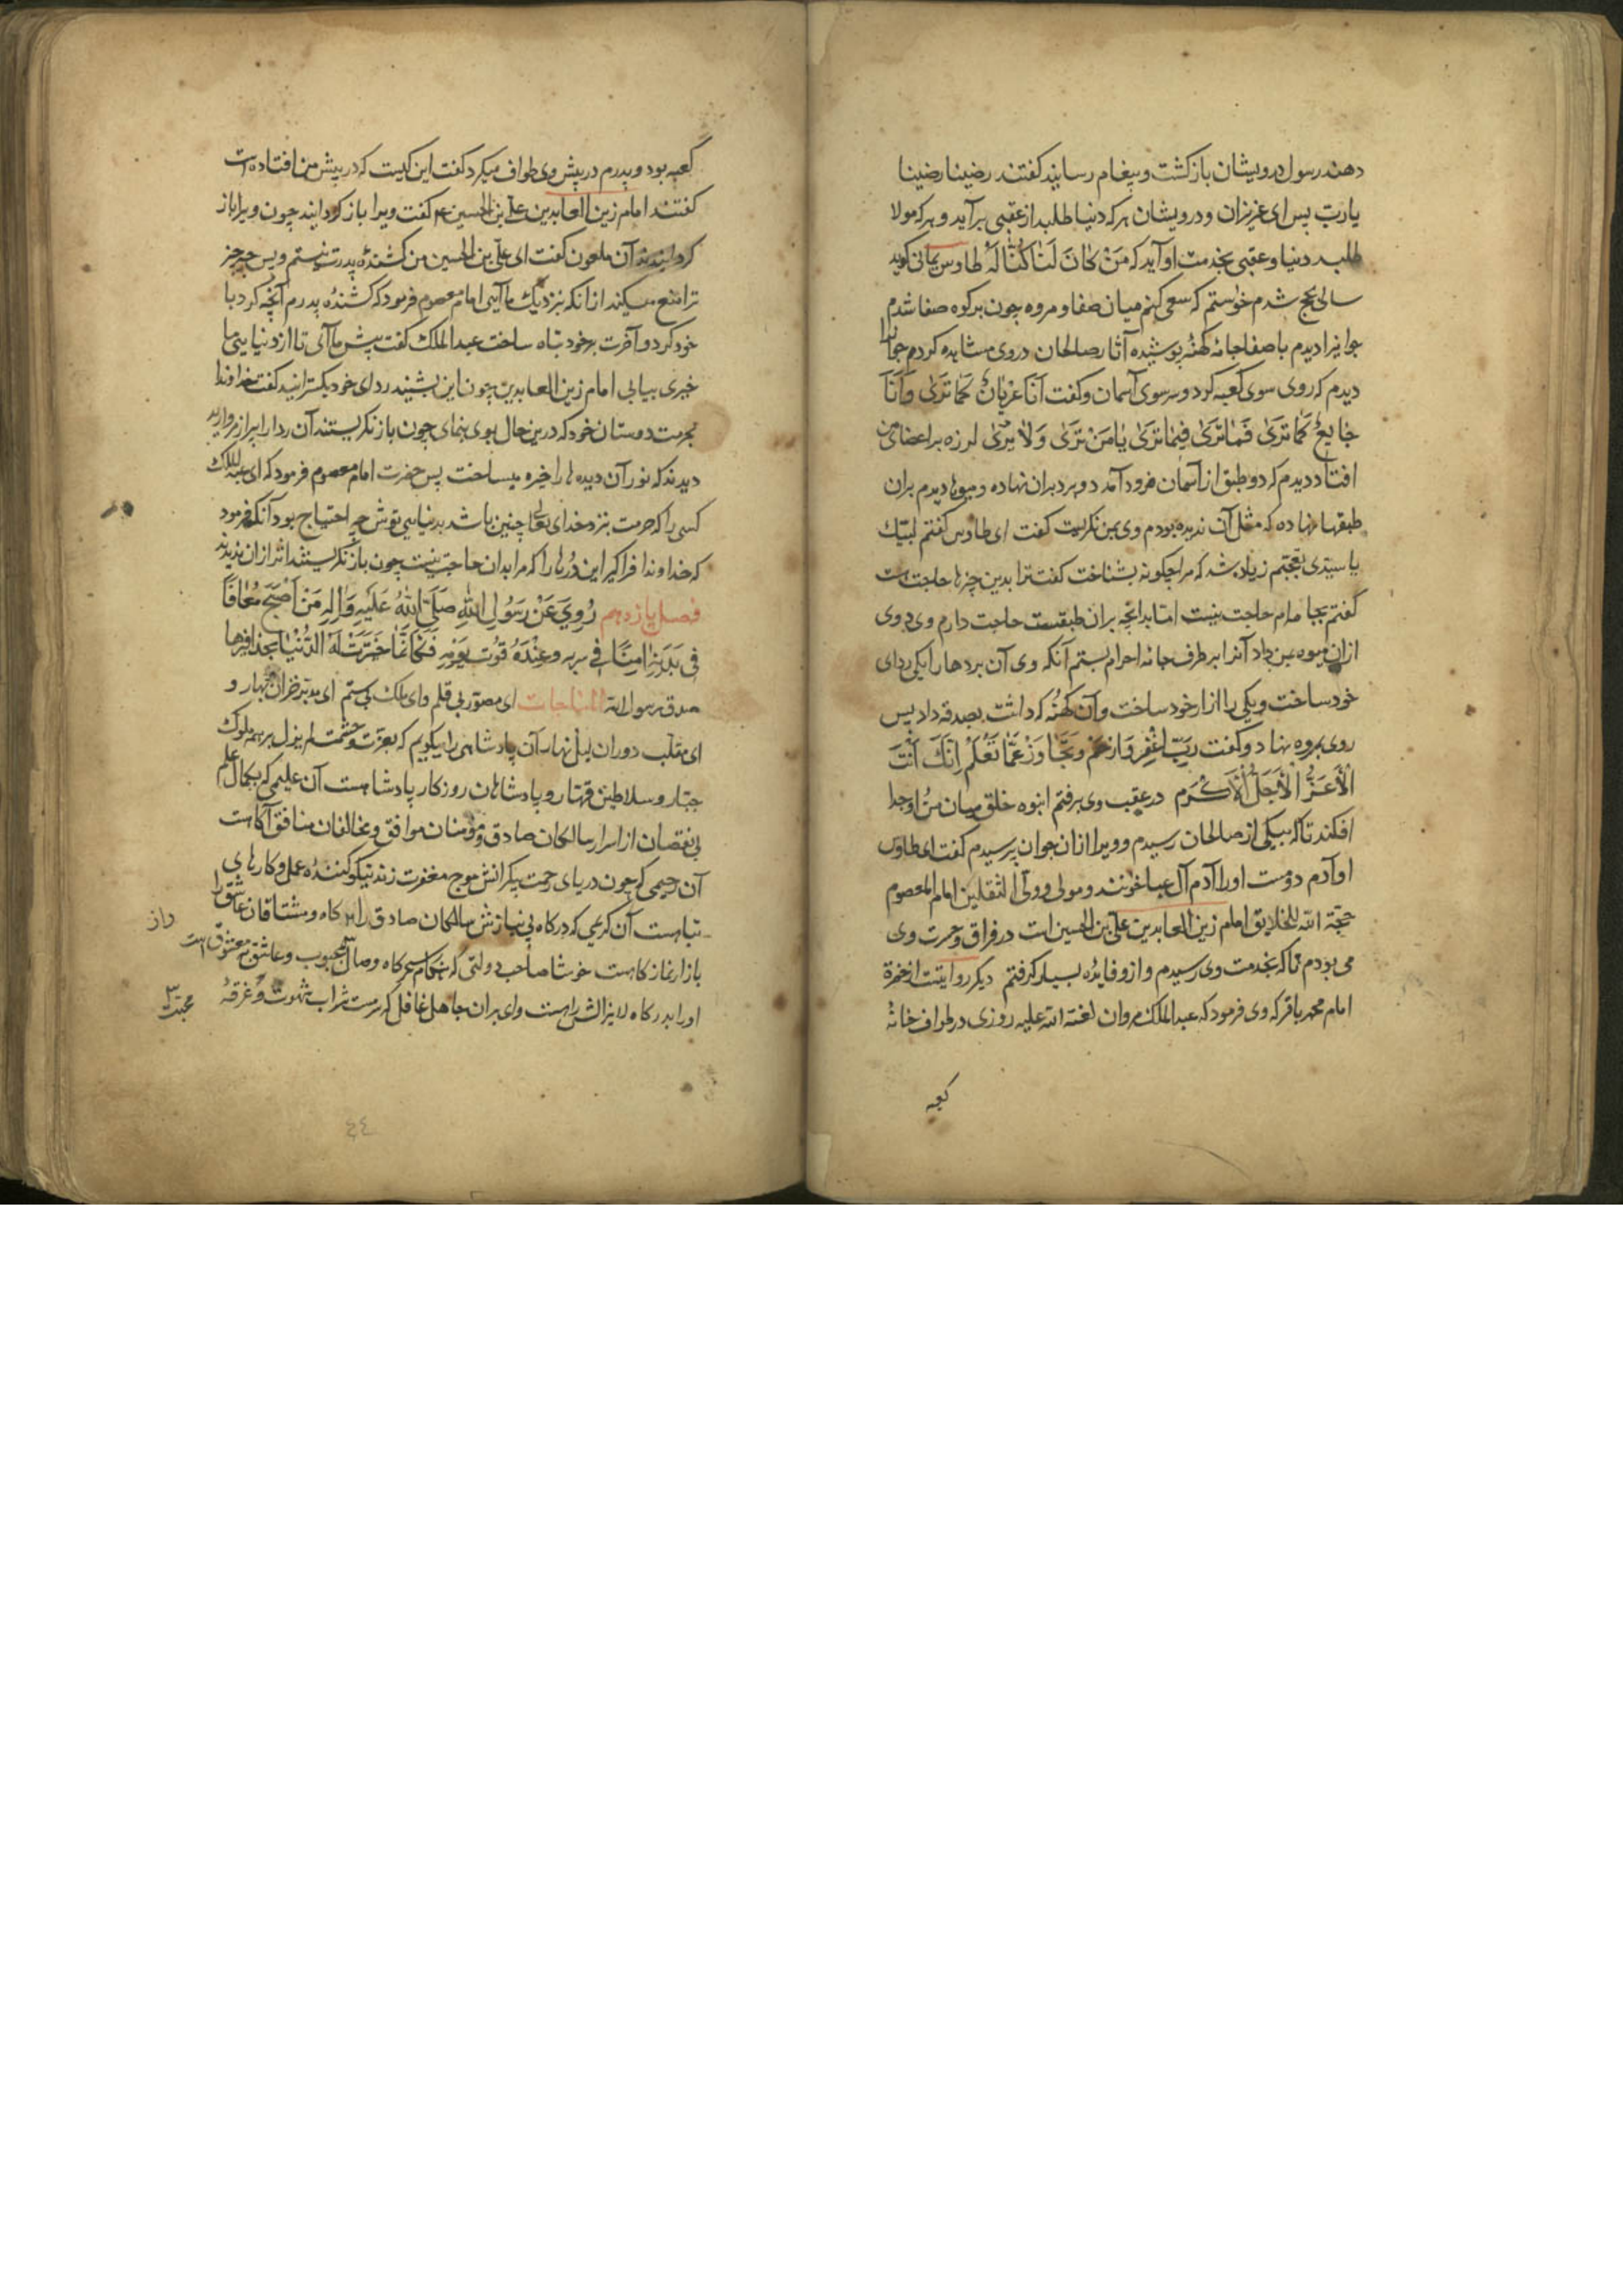 دهند رسول درویشان بازکشت و پیغام رسانید کفتند رضینا رضینا
یا رب پس ای عزیزان و درویشان هرکه دنیا طلبد از عقبی برآید و هرکه مولا
طلبد دنیا و عقبی بخدمت او آید که مَنْ کانَ لَنا کُنّا لَهُ طاوس یمانی کوید
سالی بحج شدم خواستم که سعی کنم میان صفا و مروه چون بر کوه صفا شدم
جوانیرا دیدم باصفا جامهٔ کهنه پوشیده آثار صالحان در وی مشاهده کردم جوانرا
دیدم که روی سوی کعبه کرد و سر سوی آسمان و کفت اَنَا عُرْیانٌ کَما تَریٰ وَ اَنَا
جٰایِعٌ کَمٰا تَریٰ فَمٰا تَریٰ فیمٰا تَریٰ یٰا مَنْ تَریٰ وَلٰا یُریٰ لرزه بر اعضای من
افتاد دیدم که دو طبق از آسمان فرود آمد دو برد بران نهاده و میوها دیدم بران
طبقها نهاده که مثل آن ندیده بودم وی بمن نکریست کفت ای طاوس کفتم لبّیك
یا سیّدی تعجّبم زیاد شد که مرا چکونه بشناخت کفت ترا بدین چیزها حاجت است
کفتم بجامه‌ام حاجت نیست اما بدانچه بران طبقست حاجت دارم وی
ازان میوه بمن داد آنرا بر طرف جامه احرام بستم آنکه وی آن بردها را یکی ردای
خود ساخت و یکی را ازار خود ساخت و آن کهنه که داشت بصدقه داد پس
روی بمروه نهاد و کفت رَبِّ اغْفِر وَارْحَمْ وَ تَجٰاوَزْ عَمّٰا تَعْلَمْ اِنَّكَ اَنْتَ
الْاَعَزُّ الْاَجَلُّ الْاَکْرَم در عقب وی برفتم انبوه خلق میان من و او جدا
افکند تا که بیکی از صالحان رسیدم و ویرا ازان جوان پرسیدم کفت ای طاوس
او آدم دؤست او را آدم آل عبا خوانند و مولی و ولیّ الثقلین امام المعصوم
حجّة الله للخلایق امام زین العابدین علیّ بن الحسین است در فراق و حسرت وی
می بودم تا که بخدمت وی رسیدم و ازو فایده بسیار کرفتم دیکر روایتست از حضرة
امام محمد باقر که وی فرمود که عبد الملك مروان لعنة الله علیه روزی در طواف خانهٔ
کعبه
کعبه بود و پدرم در پیش وی طواف میکرد کفت این کیست که در پیش من افتاده است
کفتند امام زین العابدین علیّ بن الحسین عم کفت ویرا باز کردانید چون ویرا باز
کردانیدند آن ملعون کفت ای علیّ بن الحسین من کشندهٔ پدرت نیستم و پس چه چیز
ترا منع میکند از انکه نزدیك ما آیی امام معصوم فرمود که کشندهٔ پدرم آنچه کرد با
خود کرد و آخرت بر خود تباه ساخت عبد الملك کفت پیش ما آی تا از دنیا یی ما
خیری بیابی امام زین العابدین چون این بشنید ردای خود بکسترانید کفت خداوندا
بحرمت دوستان خود که درین حال بوی بنمای چون باز نکریستند آن ردا را پر از مروارید
دیدند که نور آن دیده ها را خیره میساخت پس حضرت امام معصوم فرمود که ای عبد الملك
کسی را که حرمت نزد خدای تعالی چنین باشد بدنیایی توش چه احتیاج بود آنکه فرمود
که خداوندا فراکیر این دُرها را که مرا بدان حاجت نیست چون باز نکریستند اثر ازان ندیدند
فصل یازدهم رُوِیَ عَنْ رَسُولِ اللهِ صَلَّی اللهُ عَلَیْهِ وَاٰلِهِ مَنْ اَصْبَحَ مُعٰافًا
فی بَدَنِهِ اٰمِنًا فی سربه و عِنْدَهُ قُوتُ یَوْمِهِ فَکَاَنَّمٰا خُیِّرَتْ لَهُ الدُّنْیٰا بحذافیرها
صدق رسول الله المناجات ای مصوّر بی قلم و ای ملك بی ستم ای مدبّر خزان بهار و
ای مقلّب دوران لیل نهار آن پادشاهی را میکویم که بعزّت و حشمت لم یزل بر همه ملوك
جبّار و سلاطین قهّار و پادشاهان روزکار پادشاهست آن علیمی که بکمال علم
بی نقصان از اسرار سالکان صادق و مؤمنان موافق و مخالفان منافق آکاهست
آن رحیمی که چون دریای رحمت بیکرانش موج مغفرت زند نیکو کنندهٔ عمل و کارهای
تباهست آن کریمی که درکاه بی نیازش سالکان صادق را  و مشتاقان عاشق را
بازار نماز کاهست خوشا صاحب دولتی که هنکام سحرکاه وصال محبوب و عاشق معشوق است
او را بدرکاه لایزالش راهست وای بران جاهل غافل که سرمست شراب شهوت و غرقهٔ
محبت
٤٤